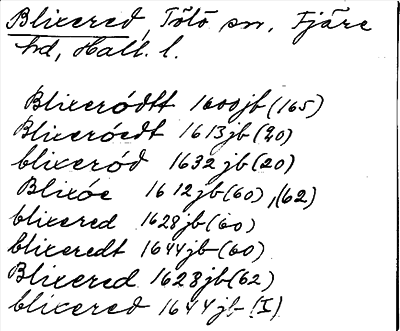 Blixered, Tölö sn, Fjäre
hd, Hall. l.
Blixerödtt 1600 jb (165)
Blixeröedt 1613 jb (20)
blixeröd 1632 jb (20)
Blixöe 1612 jb (60), (62)
blixered 1628 jb (60)
blixeredt 1644 jb (60)
Blixered 1628 jb (62)
blixered 1644 jb (I)